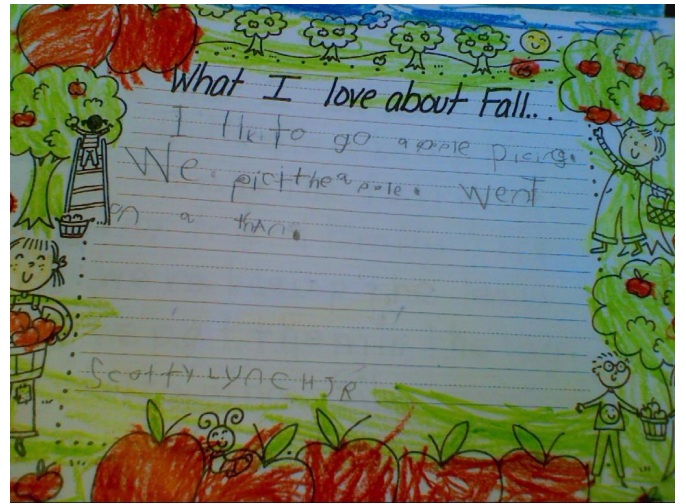 What I love about Fall...
I lik to go apple picing.
We. pict the apole. went
on a than.
Scotty LYNCH JR